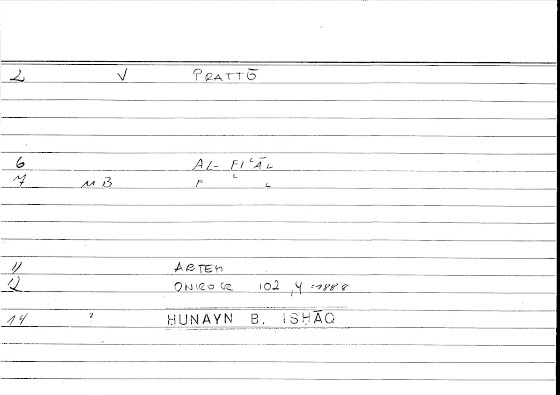 2 V PRATTŌ
6 AL- FIʿĀL
7 MB F ʿ L
11 ARTEM
12 ONIROCR 102,4 =1888
14 ² HUNAYN B. ISHĀQ